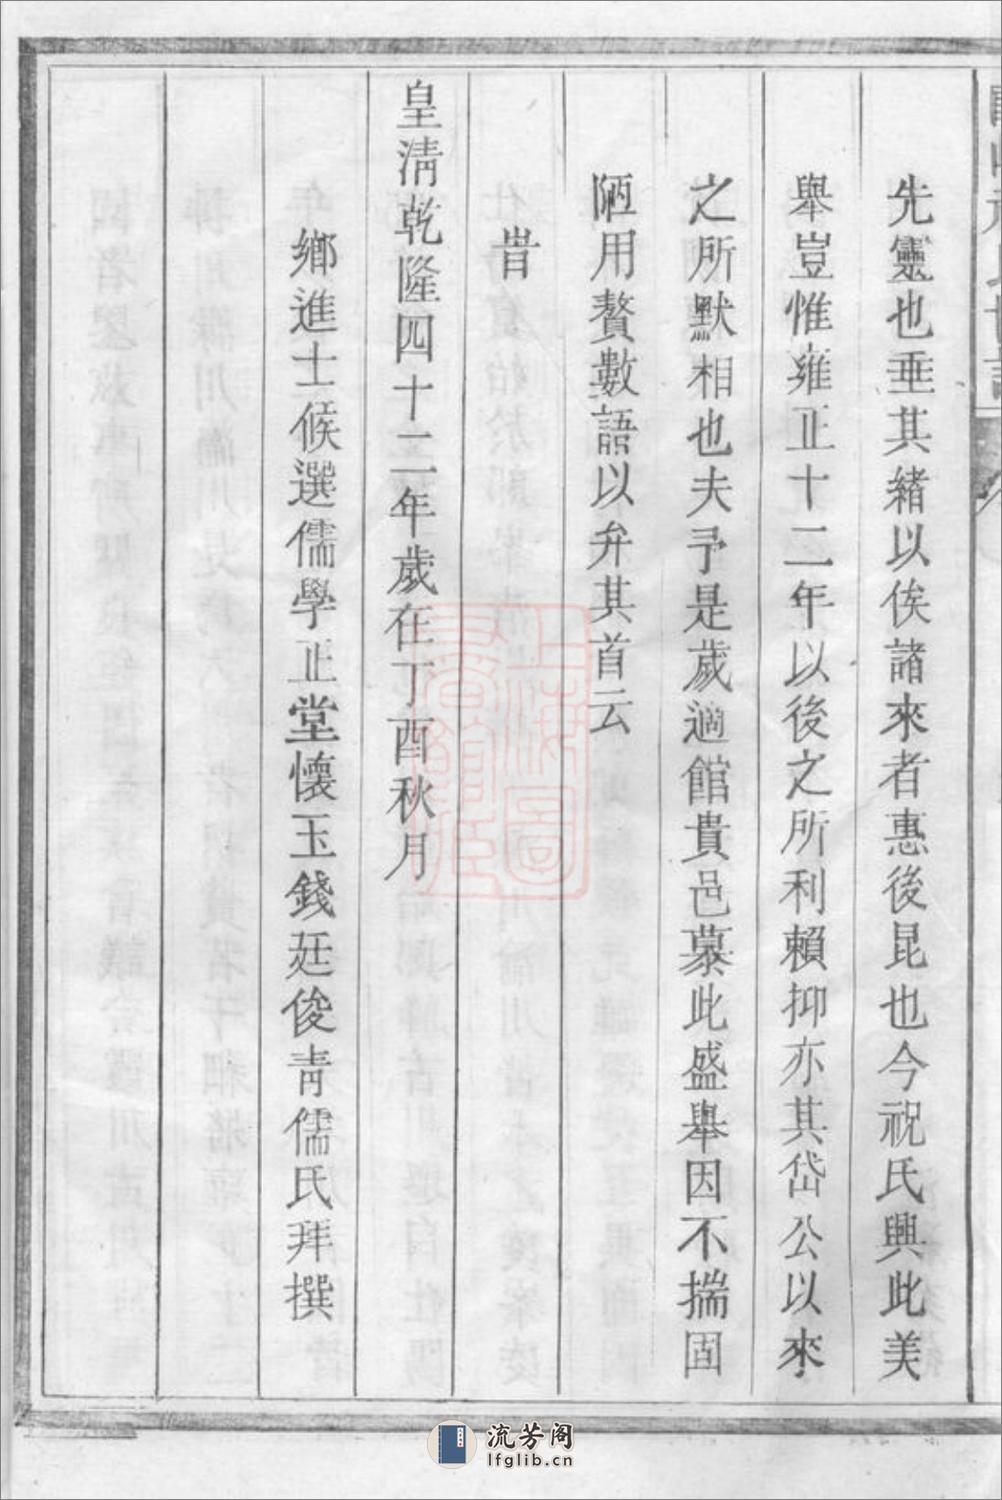 先靈也垂其緒以俟諸來者惠後昆也今祝氏興此美
舉豈惟雍正十二年以後之所利賴抑亦其岱公以來
之所默相也夫予是歲適館貴邑慕此盛舉因不揣固
陋用贅數語以弁其首云
旹
皇淸乾隆四十二年歲在丁酉秋月
鄉進士候選儒學正堂懷玉錢廷俊靑儒氏拜撰
流芳阁
lfglib.cn